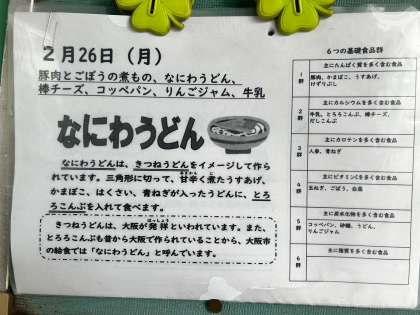 2月26日（月）
豚肉とごぼうの煮もの、なにわうどん、
棒チーズ、コッペパン、りんごジャム、牛乳
なにわうどん
なにわうどんは、きつねうどんをイメージして作ら
れています。三角形に切って、甘辛く煮たうすあげ、
かまぼこ、はくさい、青ねぎが入ったうどんに、とろ
ろこんぶを入れて食べます。
きつねうどんは、大阪が発祥といわれています。また、
とろろこんぶも昔から大阪で作られていることから、大阪市
の給食では「なにわうどん」と呼んでいます。
6つの基礎食品群
1群
主にたんぱく質を多く含む食品
豚肉、かまぼこ、うすあげ、
けずりぶし
2群
主にカルシウムを多く含む食品
牛乳、とろろこんぶ、棒チーズ、
だしこんぶ
3群
主にカロテンを多く含む食品
人参、青ねぎ
4群
主にビタミンCを多く含む食品
玉ねぎ、ごぼう、白菜
5群
主に炭水化物を多く含む食品
コッペパン、砂糖、うどん、
りんごジャム
6群
主に脂質を多く含む食品